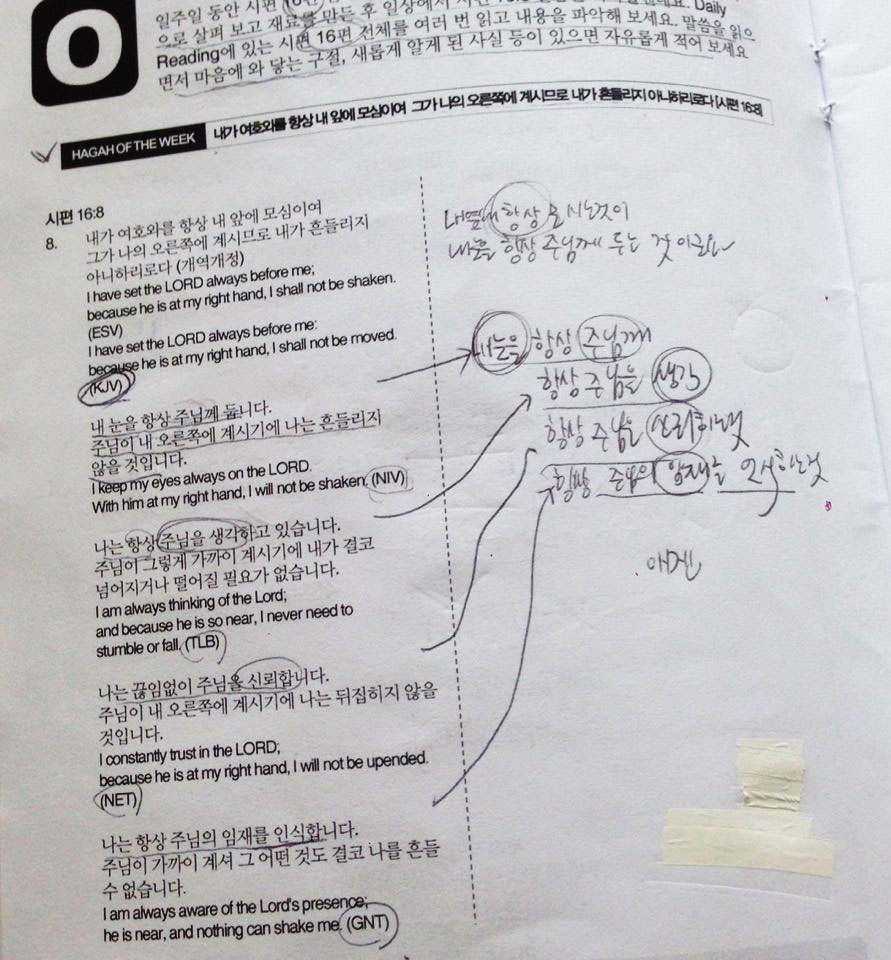 일주일 동안 시편
Daily
으로 살펴 보고 재료를 만든 후 일상에서
Reading에 있는 시편 16편 전체를 여러 번 읽고 내용을 파악해 보세요. 말씀을 읽으
면서 마음에 와 닿는 구절, 새롭게 알게 된 사실 등이 있으면 자유롭게 적어 보세요
O
HAGAH OF THE WEEK 내가 여호와를 항상 내 앞에 모심이여 그가 나의 오른쪽에 계시므로 내가 흔들리지 아니하리로다 [시편 16:8]
시편 16:8
8. 내가 여호와를 항상 내 앞에 모심이여
그가 나의 오른쪽에 계시므로 내가 흔들리지
아니하리로다 (개역개정)
I have set the LORD always before me;
because he is at my right hand, I shall not be shaken.
(ESV)
I have set the LORD always before me:
because he is at my right hand, I shall not be moved.
(KJV)
내 눈을 항상 주님께 둡니다.
주님이 내 오른쪽에 계시기에 나는 흔들리지
않을 것입니다.
I keep my eyes always on the LORD.
With him at my right hand, I will not be shaken. (NIV)
나는 항상 주님을 생각하고 있습니다.
주님이 그렇게 가까이 계시기에 내가 결코
넘어지거나 떨어질 필요가 없습니다.
I am always thinking of the Lord;
and because he is so near, I never need to
stumble or fall. (TLB)
나는 끊임없이 주님을 신뢰합니다.
주님이 내 오른쪽에 계시기에 나는 뒤집히지 않을
것입니다.
I constantly trust in the LORD;
because he is at my right hand, I will not be upended.
(NET)
나는 항상 주님의 임재를 인식합니다.
주님이 가까이 계셔 그 어떤 것도 결코 나를 흔들
수 없습니다.
I am always aware of the Lord's presence;
he is near, and nothing can shake me. (GNT)
항상 모시는것이
항상 주님께 두는 것이군요
내눈을 항상 주님께
항상 주님을 생각
항상 주님을 신뢰하는것
항상 주님의 임재를
아멘